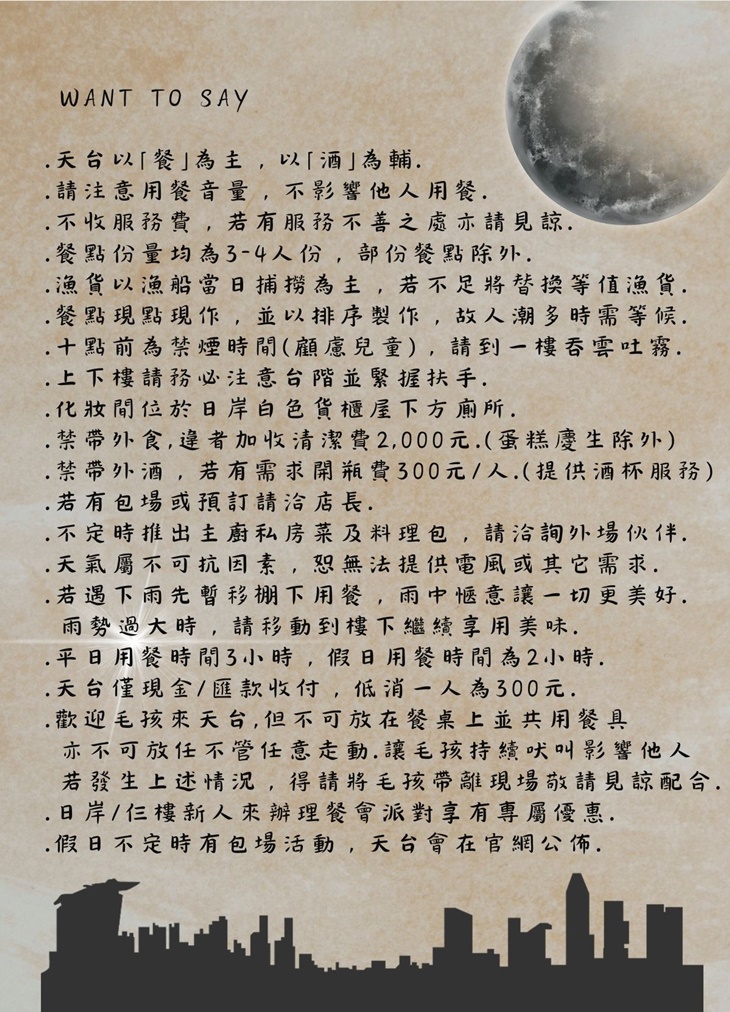 WANT TO SAY
.天台以「餐」為主，以「酒」為輔.
.請注意用餐音量，不影響他人用餐.
.不收服務費，若有服務不善之處亦請見諒.
.餐點份量均為3-4人份，部份餐點除外.
.漁貨以漁船當日捕撈為主，若不足將替換等值漁貨.
.餐點現點現作，並以排序製作，故人潮多時需等候.
.十點前為禁煙時間(顧慮兒童)，請到一樓吞雲吐霧.
.上下樓請務必注意台階並緊握扶手.
.化妝間位於日岸白色貨櫃屋下方廁所.
.禁帶外食,違者加收清潔費2,000元.(蛋糕慶生除外)
.禁帶外酒，若有需求開瓶費300元/人.(提供酒杯服務)
.若有包場或預訂請洽店長.
.不定時推出主廚私房菜及料理包，請洽詢外場伙伴.
.天氣屬不可抗因素，恕無法提供電風或其它需求.
.若遇下雨先暫移棚下用餐，雨中愜意讓一切更美好.
雨勢過大時，請移動到樓下繼續享用美味.
.平日用餐時間3小時，假日用餐時間為2小時.
.天台僅現金/匯款收付，低消一人為300元.
.歡迎毛孩來天台,但不可放在餐桌上並共用餐具
亦不可放任不管任意走動.讓毛孩持續吠叫影響他人
若發生上述情況，得請將毛孩帶離現場敬請見諒配合.
.日岸/仨樓新人來辦理餐會派對享有專屬優惠.
.假日不定時有包場活動，天台會在官網公佈.